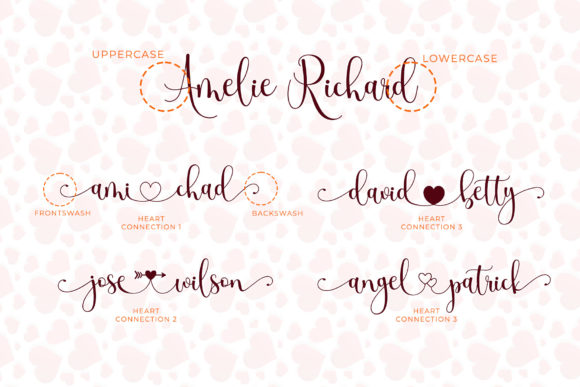 UPPERCASE
LOWERCASE
Amelie Richard
ami chad
FRONTSWASH
BACKSWASH
HEART
CONNECTION 1
david betty
HEART
CONNECTION 3
jose wilson
HEART
CONNECTION 2
angel patrick
HEART
CONNECTION 3